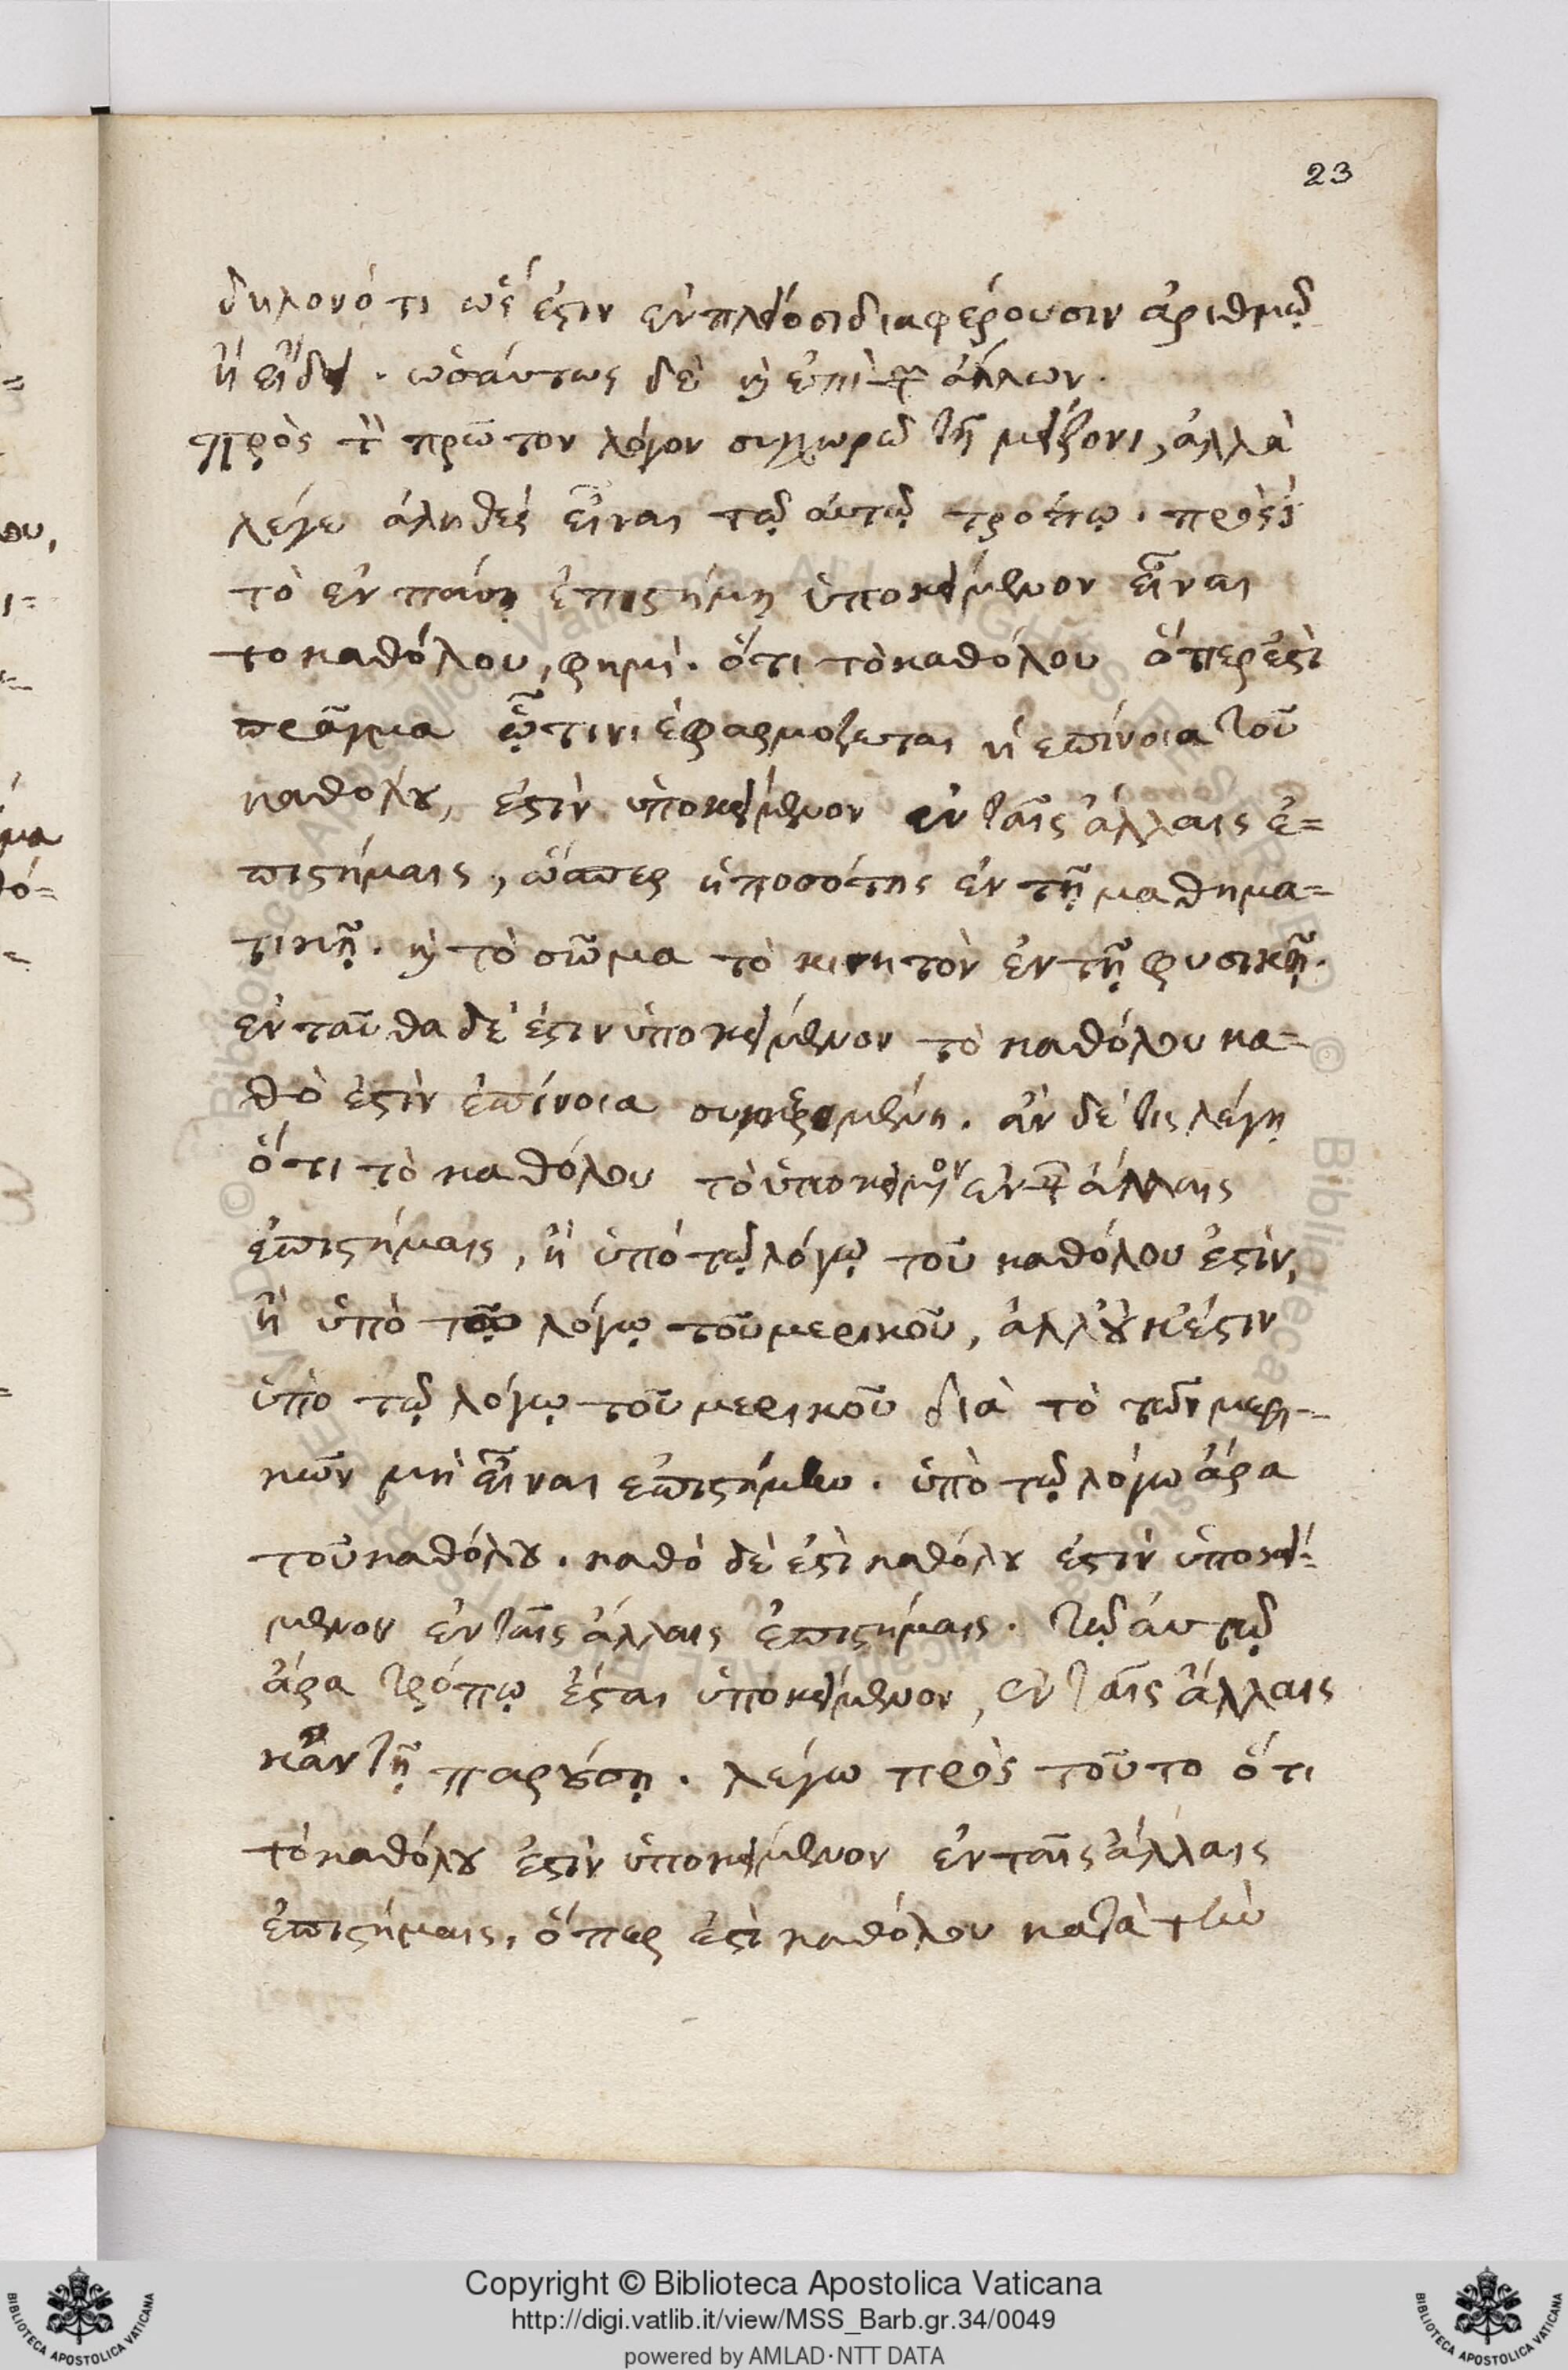 23
δηλονότι ὡς ἔστιν ἐν πλείοσι διαφέρουσιν ἀριθμῷ
ἢ εἴδει. ὡσάυτως δὲ καὶ ἐπὶ τῶν ἄλλων.
πρὸς τὸν πρῶτον λόγον συγχωρῶ τῇ μείζονι, ἀλλὰ
λέγω ἀληθὲς εἶναι τῷ ἀυτῷ τρόπῳ. πρὸς
τὸ ἐν πάσῃ ἐπιστήμῃ ὑποκείμενον εἶναι
τὸ καθόλου, φημὶ. ὅτι τὸ καθόλου ὅπερ ἐστὶ
πρᾶγμα ᾧτινι ἐφαρμόζεται ἡ ἐπίνοια τοῦ
καθόλου, ἐστὶν ὑποκείμενον ἐν ταῖς ἄλλαις ἐ=
πιστήμαις, ὥσπερ ἡ ποσότης ἐν τῇ μαθημα=
τικῇ. καὶ τὸ σῶμα τὸ κινητὸν ἐν τῇ φυσικῇ.
ἐνταῦθα δὲ ἐστιν ὑποκείμενον τὸ καθόλου κα=
θὸ ἐστὶν ἐπίνοια . ἂν δέ τις λέγῃ
ὅτι τὸ καθόλου τὸ ὑποκείμενον ἐν ταῖς ἄλλαις
ἐπιστήμαις, ἢ ὑπὸ τῷ λόγῳ τοῦ καθόλου ἐστὶν,
ἢ ὑπὸ τῷ λόγῳ τοῦ μερικοῦ, ἀλλ' οὐκ ἔστιν
ὑπὸ τῷ λόγῳ τοῦ μερικοῦ διὰ τὸ τῶν μερι=
κῶν μὴ εἶναι ἐπιστήμην. ὑπὸ τῷ λόγῳ ἄρα
τοῦ καθόλου. καθὸ δὲ ἐστὶ καθόλου ἐστὶν ὑποκεί=
μενον ἐν ταῖς ἄλλαις ἐπιστήμαις. τῷ ἀυτῷ
ἄρα τρόπῳ ἔσται ὑποκείμενον, ἐν ταῖς ἄλλαις
κἂν τῇ παρούσῃ. λέγω πρὸς τοῦτο ὅτι
τὸ καθόλου ἐστὶν ὑποκείμενον ἐν ταῖς ἄλλαις
ἐπιστήμαις, ὅπερ ἐστὶ καθόλου κατὰ τὴν
Copyright © Biblioteca Apostolica Vaticana
http://digi.vatlib.it/view/MSS_Barb.gr.34/0049
powered by AMLAD·NTT DATA